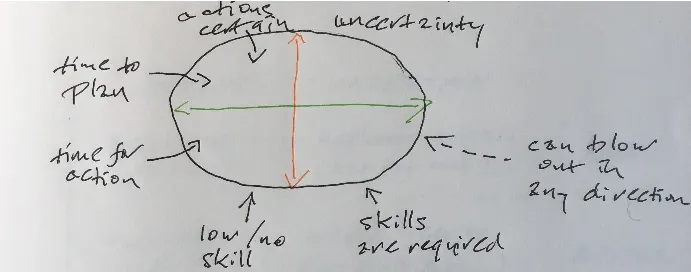 actions
certain
uncertainty
time to
plan
time for
action
can blow
out in
any direction
low/no
skill
skills
are required